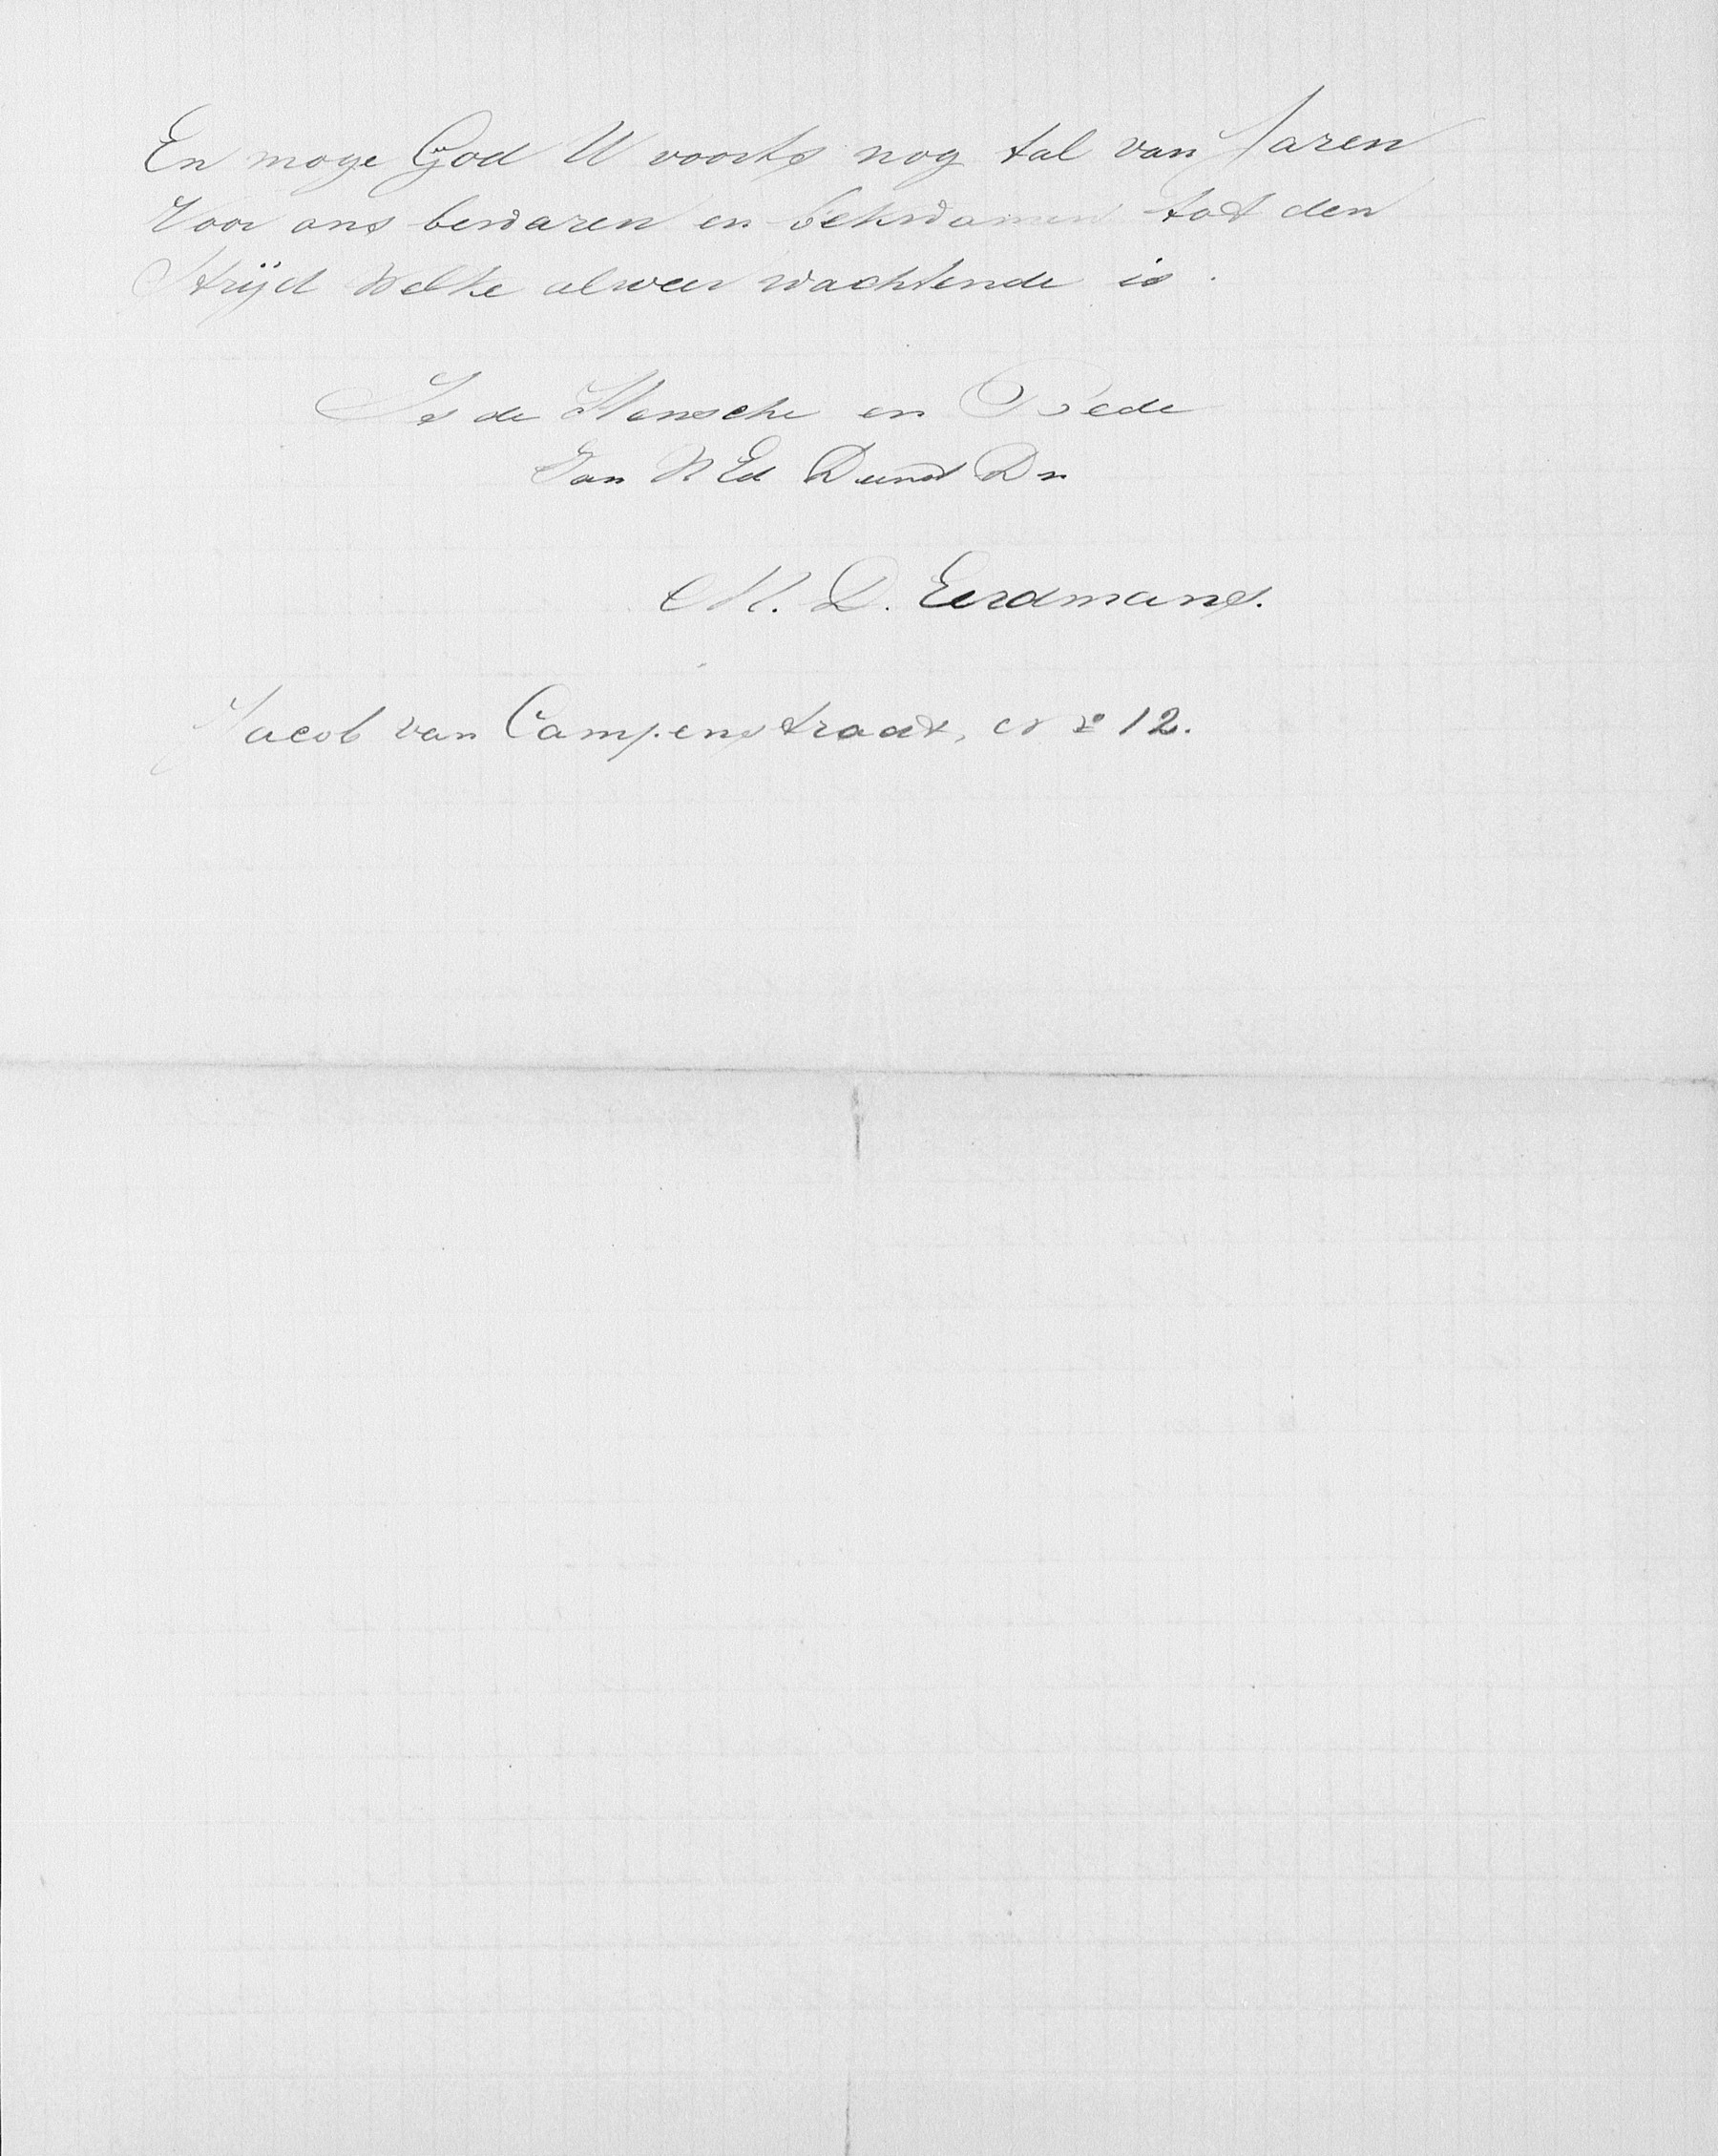 En moge God U voorts nog tal van Jaren
Voor ons bewaren en bekwamen tot den
Strijd Welke alweer wachtende is.
Is de Wensche en Bede
Van WEd Dwnd Dr
M. D. Eerdmans.
Jacob van Campenstraat, No 12.